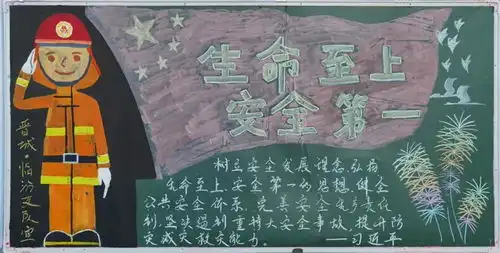 生命至上
安全第一
树立安全发展理念,弘扬
生命至上、安全第一的思想,健全
公共安全体系,完善安全生产责任
制,坚决遏制重特大安全事故,提升防
灾减灾救灾能力。
——习近平
晋城·临汾支队宣